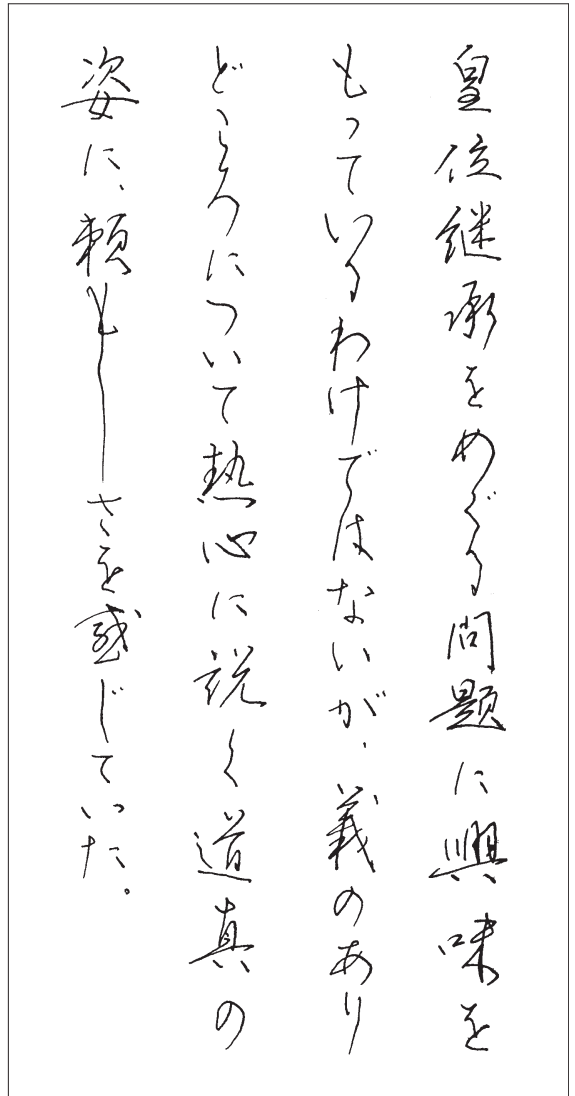 皇位継承をめぐる問題に興味を
もっているわけではないが、義のあり
どころについて熱心に説く道真の
姿に、頼もしさを感じていた。